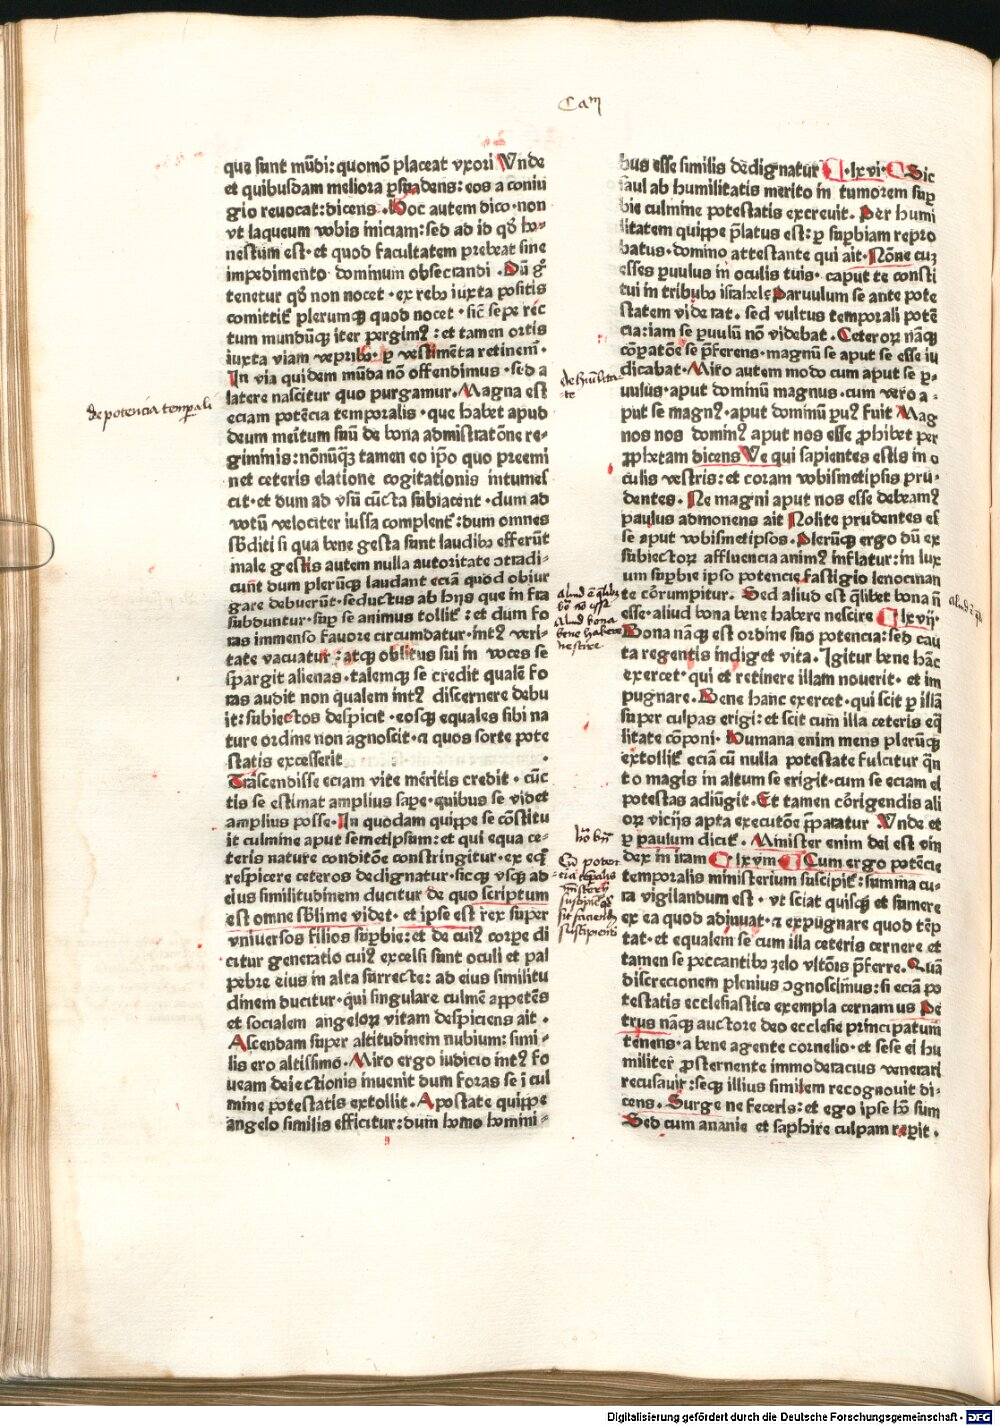 Cam
que sunt mūdi: quomō placeat vxori Vnde
et quibusdam meliora ꝑsuadens: eos a coniu
gio reuocat: dicens . Hoc autem dico · non
vt laqueum vobis iniciam: sed ad id qḋ ho-
nestum est · et quod facultatem prebeat sine
impedimento dominum obsecrandi . Dū g̊
tenetur qḋ non nocet · ex rebꝰ iuxta positis
comittit᷑ plerumqꝫ quod nocet · sic̄ sepe rec̄
tum mundūqꝫ iter pergimꝰ : et tamen ortis
iuxta viam vepribꝰ · ꝑ vestimēta retinem᷑ .
In via quidem mūda nō offendimus · sed a
latere nascitur quo purgamur. Magna est
eciam potēcia temporalis · que habet apud
deum meritum suū de bona admistratōne re-
giminis: nōnūqꝫ tamen eo ip̄o quo preemi
net ceteris elatione cogitationis intumes
cit · et dum ad vsū cūcta subiacent · dum ad
votū velociter iussa complent᷑ : dum omnes
sb̄diti si qua bene gesta sunt laudibꝰ efferūt
male gestis autem nulla autoritate ↄtradi-
cunt dum plerūqꝫ laudant eciā quod obiur
gare debuerūt · seductus ab hijs que in fra
subduntur · suꝑ se animus tollit᷑ : et dum fo
ras immenso fauore circumdatur · intꝰ veri-
tate vacuatur : atqꝫ oblitus sui in voces se
spargit alienas · talemqꝫ se credit qualē fo
ras audit non qualem intꝰ discernere debu
it: subiectos despicit · eosqꝫ equales sibi na
ture ordine non agnoscit · ⁊ quos sorte pote
statis excesserit .
Trāscendisse eciam vite meritis credit · cūc
tis se estimat amplius sape · quibus se videt
amplius posse · In quodam quippe se cōstitu
it culmine aput semetipsum: et qui equa ce-
teris nature conditōe constringitur · ex eqꝫ
respicere ceteros dedignatur · sicqꝫ vsqꝫ ad
eius similitudinem ducitur de quo scriptum
est omne sb̄lime videt · et ipse est rex super
vniuersos filios suꝑbie: et de cuiꝰ corꝑe di
citur generatio cuiꝰ excelsi sunt oculi et pal
pebre eius in alta surrecte: ad eius similitu
dinem ducitur · qui singulare culmē appetēs
et socialem angeloꝝ vitam despiciens ait .
Ascendam super altitudinem nubium: simi-
lis ero altissimo . Miro ergo iudicio intꝰ fo
ueam deiectionis inuenit dum foras se ī cul
mine potestatis extollit . Apostate quippe
angelo similis efficitur: dum homo homini-
de potencia temꝑali
bus esse similis dedignatur · lxvi · Sic
saul ab humilitatis merito in tumorem suꝑ
bie culmine potestatis excreuit. Per humi
litatem quippe p̄latus est: ꝑ suꝑbiam repro
batus · domino attestante qui ait · Nōne cuꝫ
esses ꝑuulus in oculis tuis · caput te consti
tui in tribubꝰ israhele Paruulum se ante pote
statem viderat . sed vultus temporali potē
cia: iam se ꝑuulū nō videbat . Ceteroꝝ nāqꝫ
cōꝑatōe se p̄ferens · magnū se aput se esse iu
dicabat . Miro autem modo cum aput se ꝑ-
uulus · aput dominū magnus · cum vero a-
put se magnꝰ · aput dominū ꝑuꝰ fuit Mag
nos nos dominꝰ aput nos esse ꝓhibet per
ꝓphetam dicens Ve qui sapientes estis in o
culis vestris: et coram vobismetipsis pru-
dentes . Ne magni aput nos esse debeamꝰ
paulus admonens ait Nolite prudentes es
se aput vobismetipsos . Plerūqꝫ ergo dū ex
subiectoꝝ affluencia animꝰ inflatur: in lux
um suꝑbie ipso potencie fastigio lenocinan
te corrumpitur. Sed aliud est qīlibet bona n̄
esse · aliud bona bene habere nescire · lxvij ·
Bona nāqꝫ est ordine suo potencia: sed cau
ta regentis indiget vita . Igitur bene hāc
exercet · qui et retinere illam nouerit · et im
pugnare . Bene hanc exercet · qui scit ꝑ illā
super culpas erigi: et scit cum illa ceteris eq̄
litate cōponi . Humana enim mens plerūqꝫ
extollit᷑ eciā cū nulla potestate fulcitur qn̄
to magis in altum se erigit · cum se eciam ei
potestas adiūgit . Et tamen corrigendis ali
oꝝ vicijs apta executōe p̄paratur Vnde et
ꝑ paulum dicit᷑ . Minister enim dei est vin
dex in iram lxviij Cum ergo potēcie
temporalis ministerium suscipit᷑ : summa cu-
ra vigilandum est · vt sciat quisqꝫ et sumere
ex ea quod adiuuat · ⁊ expugnare quod tēp
tat · et equalem se cum illa ceteris cernere et
tamen se peccantibꝰ zelo vltōis p̄ferre . Quā
discrecionem plenius ↄgnoscimus: si eciā po
testatis ecclesiastice exempla cernamus Pe
trus nāqꝫ auctore deo ecclesie principatum
tenens · a bene agente cornelio · et sese ei hu
militer ꝓsternente immoderacius venerari
recusauit: seqꝫ illius similem recognouit di-
cens . Surge ne feceris: et ego ipse hō sum
Sed cum ananie et saphire culpam reꝑit .
aliud bona
bene habere
nescire
Digitalisierung gefördert durch die Deutsche Forschungsgemeinschaft - DFG